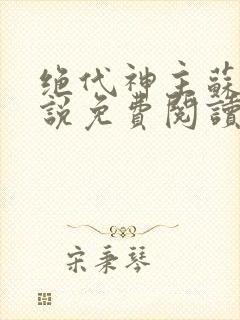 绝代神主蘇
說免費閱讀
宋秉琴